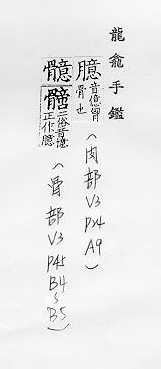 龍龕手鑑
臆 音億胷骨也
(肉部 V3 P24 A9)
髓 䯝 三俗音億正作臆
(骨部 V3 P45 B4~B5)